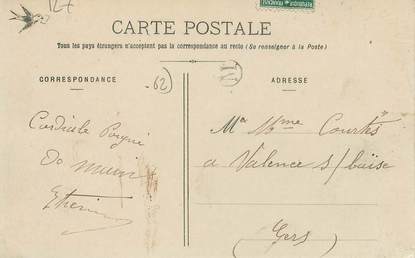 127
CARTE POSTALE
Tous les pays étrangers n'acceptent pas la correspondance au recto (Se renseigner à la Poste)
CORRESPONDANCE
ADRESSE
62
Cordiale Poigné
de main
Etienne
Mr Mme Courtès
a Valence s/baïse
Gers